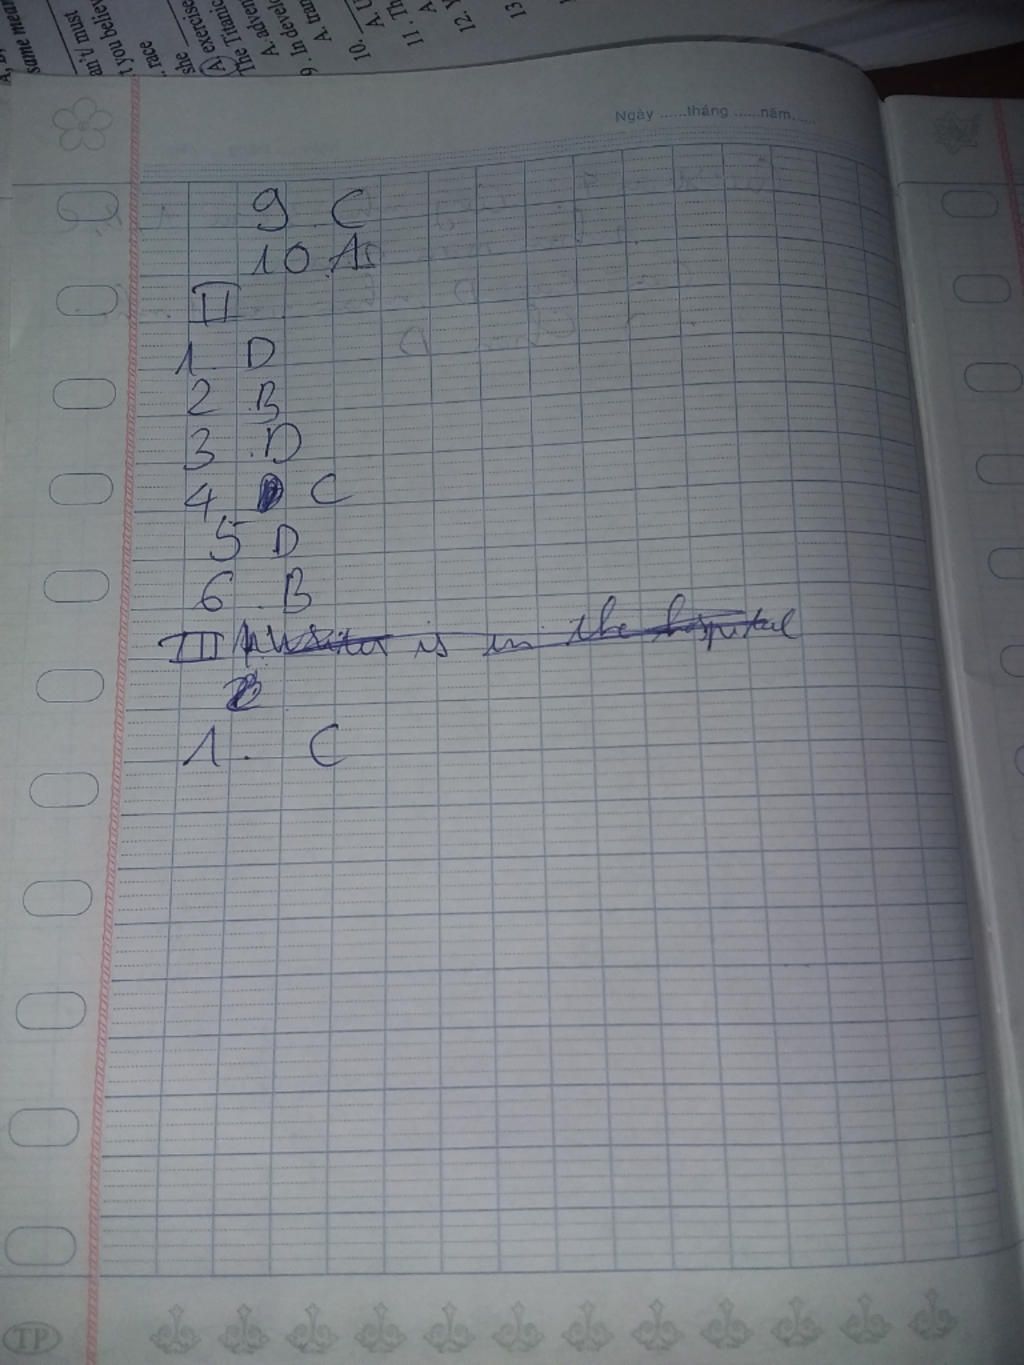 same mean
an't/ must
t you believ
. race
she
A exercise
The Titanic
A. adven
9. In develo
A. tran
10.
A. U
11. Th
A
12. Y
13
Ngày ......tháng ......năm.....
9 C
10 A
II
1. D
2 B
3 . D
4 C
5 D
6 . B
III is in the hospital
1. C
TP